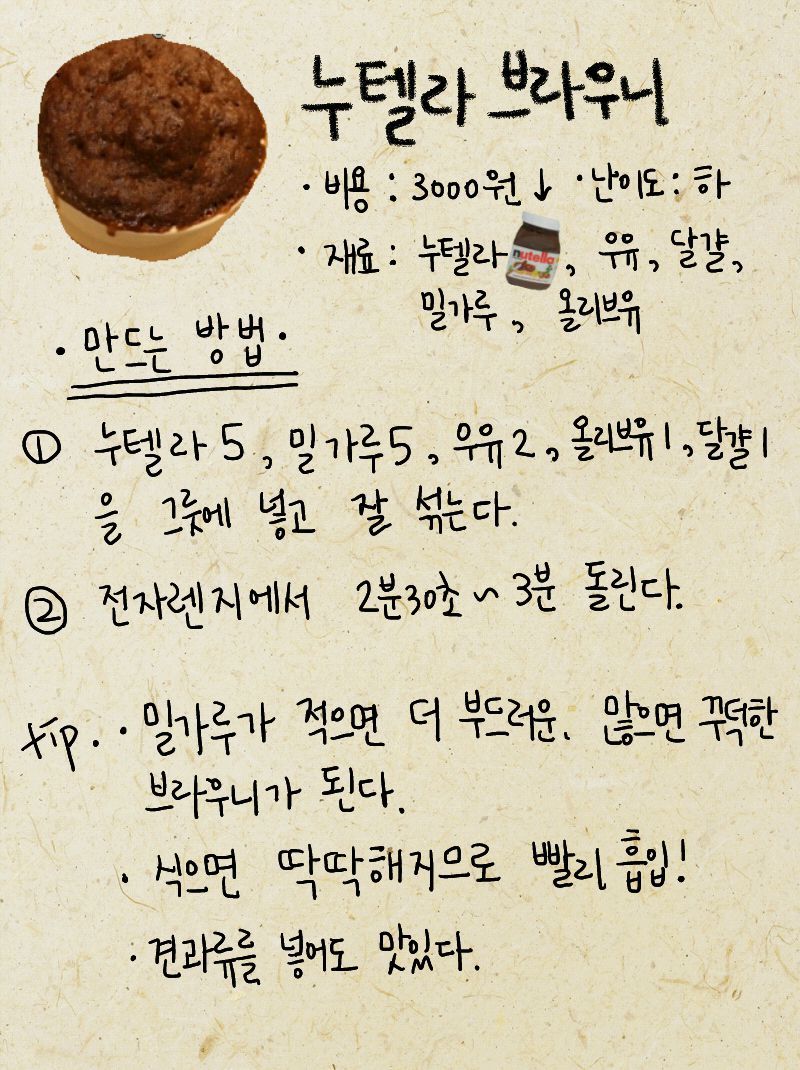 누텔라 브라우니
· 비용 : 3000원↓ · 난이도 : 하
· 재료 : 누텔라 nutella, 우유, 달걀,
밀가루, 올리브유
· 만드는 방법 ·
① 누텔라 5, 밀가루 5, 우유 2, 올리브유 1, 달걀 1
을 그릇에 넣고 잘 섞는다.
② 전자렌지에서 2분30초 ~ 3분 돌린다.
tip. · 밀가루가 적으면 더 부드러운. 많으면 꾸덕한
브라우니가 된다.
· 식으면 딱딱해지므로 빨리 흡입!
· 견과류를 넣어도 맛있다.